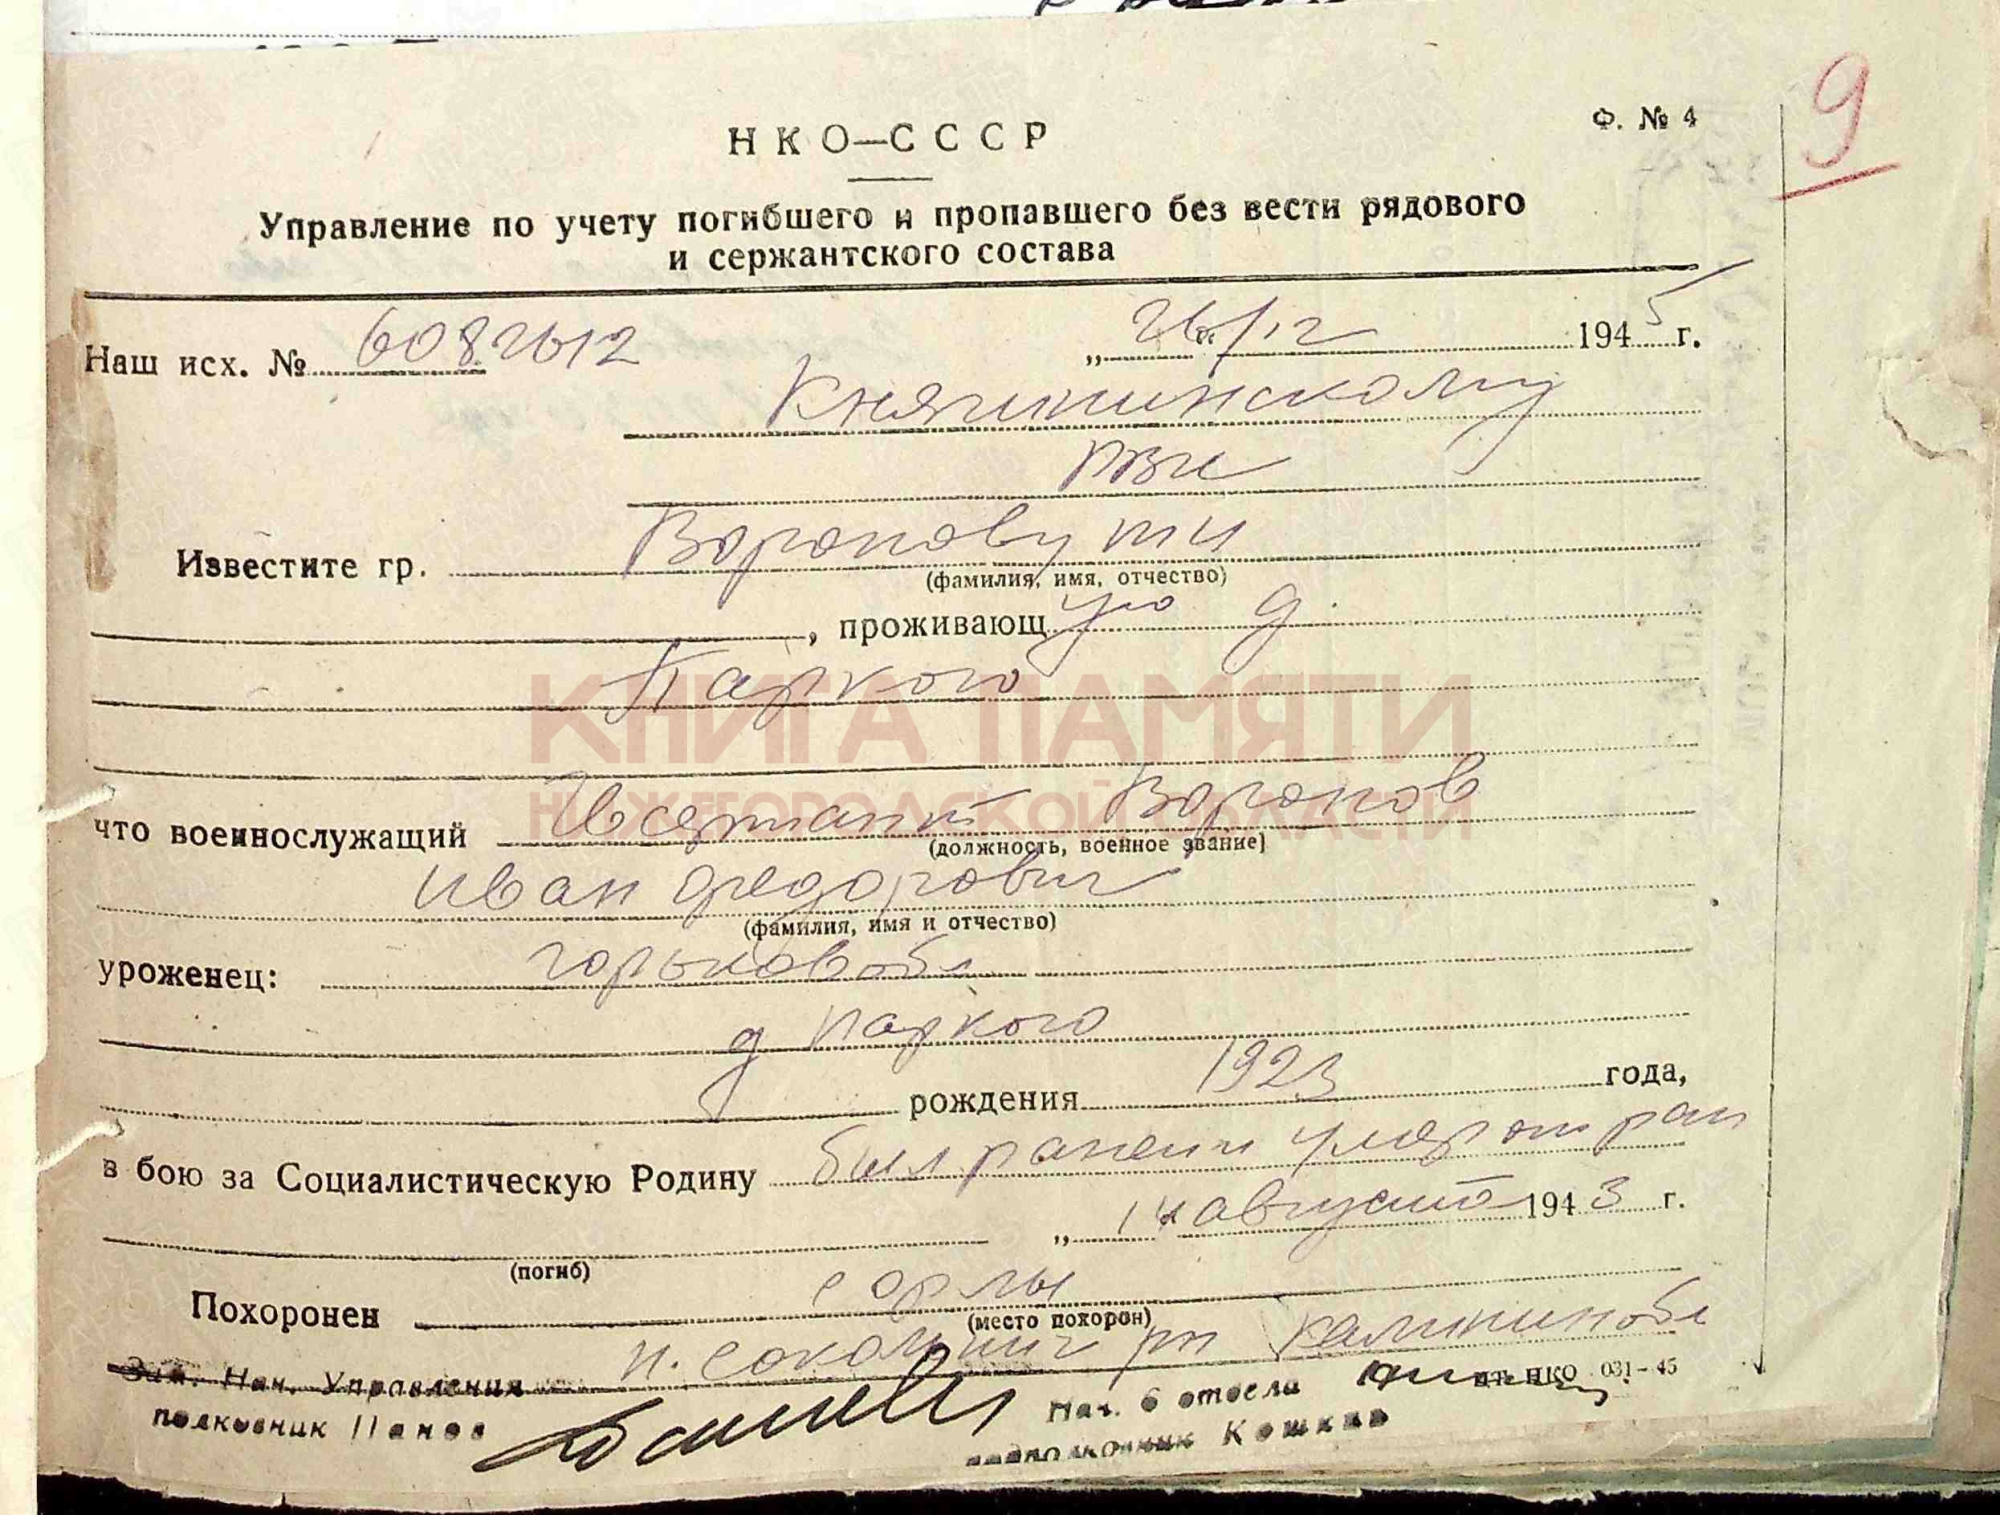 9
Ф. № 4
НКО—СССР
Управление по учету погибшего и пропавшего без вести рядового
и сержантского состава
Наш исх. № 6082612 „26/12 1945 г.
Княгининскому
РВК
Известите гр. Воронову
(фамилия, имя, отчество)
, проживающ ую д.
Шаркого
КНИГА ПАМЯТИ
НИЖЕГОРОДСКОЙ ОБЛАСТИ
что военнослужащий сержант Воронов
(должность, военное звание)
Иван Федорович
(фамилия, имя и отчество)
уроженец: Горьков обл
д
рождения 1923 года,
в бою за Социалистическую Родину был ранен и умер от ран
„14 августа 1943 г.
(погиб)
Похоронен
(место похорон)
Калинин обл
Зам. Нач. Управления
полковник Панов
Нач. 6 отдела
подполковник Кошкин
НКО 031-45